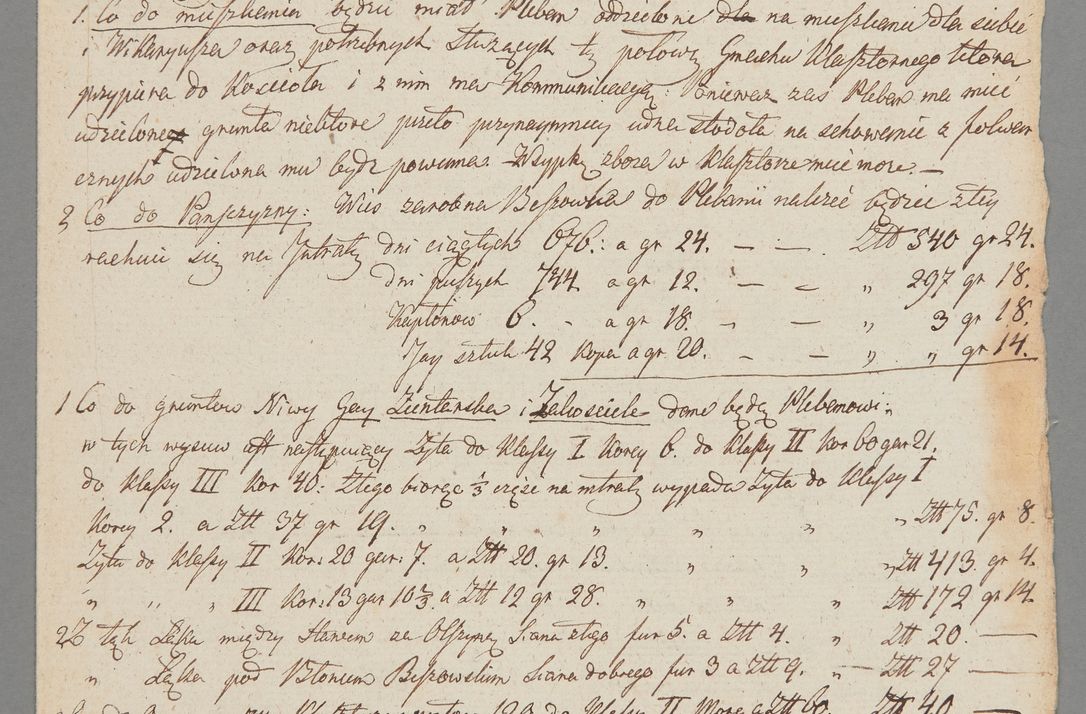 1. Co do mieszkania będzie miał Pleban oddzielone dla na mieszkanie dla siebie
i Wikaryusza oraz potrzebnych służących tę połowę Gmachu Klasztornego która
przypiera do Kościoła i z nim ma Kommunikacyą: Ponieważ zaś Pleban ma mieć
udzielone grunta niektóre przeto przynaymniey iedna stodoła na schowanie z folwar
cznych udzielona mu będz powinna. Wsypkę zboza w klasztorze mieć może. —
2 Co do Panszczyzny: Wieś zarobna Beszowka do Plebanii należeć będzie z tey
rachuie się na Intratę dni ciągłych 676: a gr 24. — — Ztt 540 gr 24.
dni pieszych 744 a gr 12. — — „ 297 gr 18.
Kapłonow 6. - a gr 18. — — „ 3 gr 18.
Jay sztuk 42 kopa a gr 20. — — „ „ gr 14.
1 Co do gruntow Niwy Gay Zientarska i Zakościele dane będą Plebanowi:
w tych wysiew est następuiący Zyta do Klassy I Korcy 6. do Klassy II Kor 60 gar 21.
do Klassy III Kor 40: Ztego biorąc ⅓ część na intratę wypada Zyta do Klassy I
Korcy 2. a Ztt 37 gr 19. „ „ „ „ „ Ztt 75. gr 8.
Zyta do Klassy II Kor: 20 gar: 7. a Ztt 20. gr 13. „ „ „ Ztt 413. gr 4.
„ „ „ III Kor: 13 gar 10⅔. a Ztt 12 gr 28. „ „ „ Ztt 172 gr 14.
2 Z tąk Łąka między Stawem za Olszyną Siana złego fur 5. a Ztt 4. „ Ztt 20. —
„ Łąka pod Błoniem Beszowskim Siana dobrego fur 3 a Ztt 9. — Ztt 27 —
Klassy II Morg a Ztt 60. Ztt 40 —